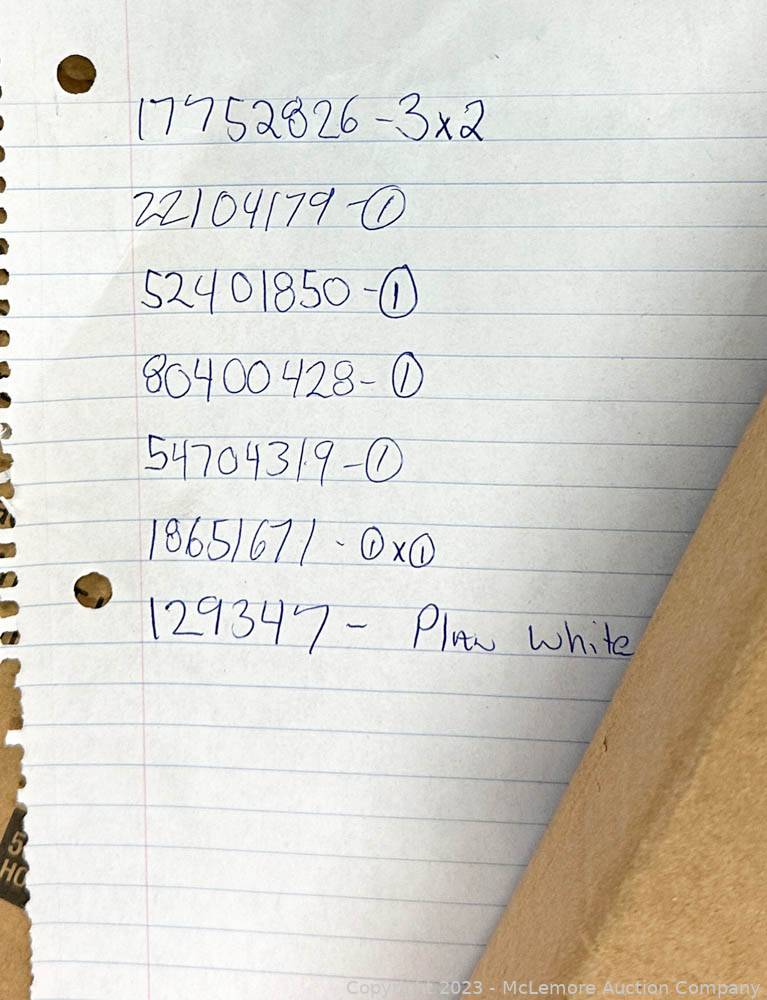 17752826 - 3x2
22104179 - ①
52401850 - ①
80400428 - ①
54704319 - ①
18651671 - ①x①
129347 - Plan white
5
HO
Copyright 2023 - McLemore Auction Company